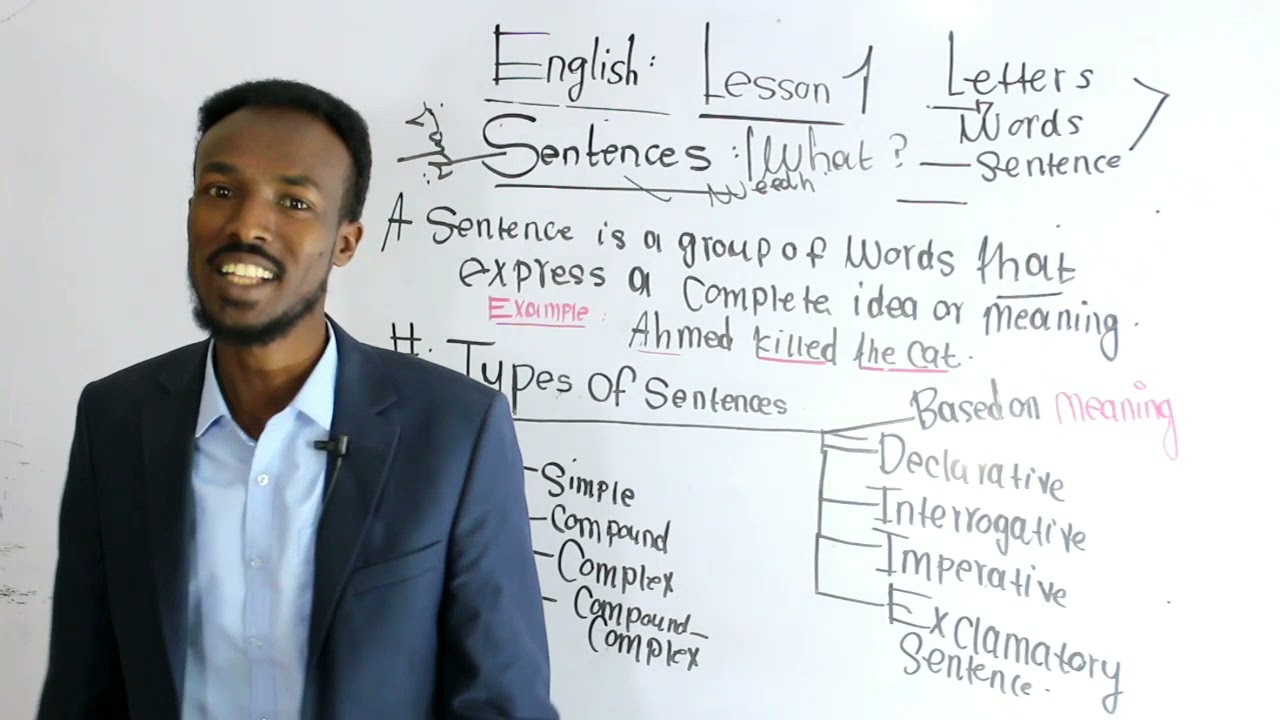 English: Lesson 1
Letters
Words
Sentence
Sentences: What?
A Sentence is a group of Words that
express a Complete idea or meaning.
Example: Ahmed killed the cat.
H. Types of Sentences
Simple
Compound
Complex
Compound-
Complex
Based on Meaning
Declarative
Interrogative
Imperative
Exclamatory
Sentence.